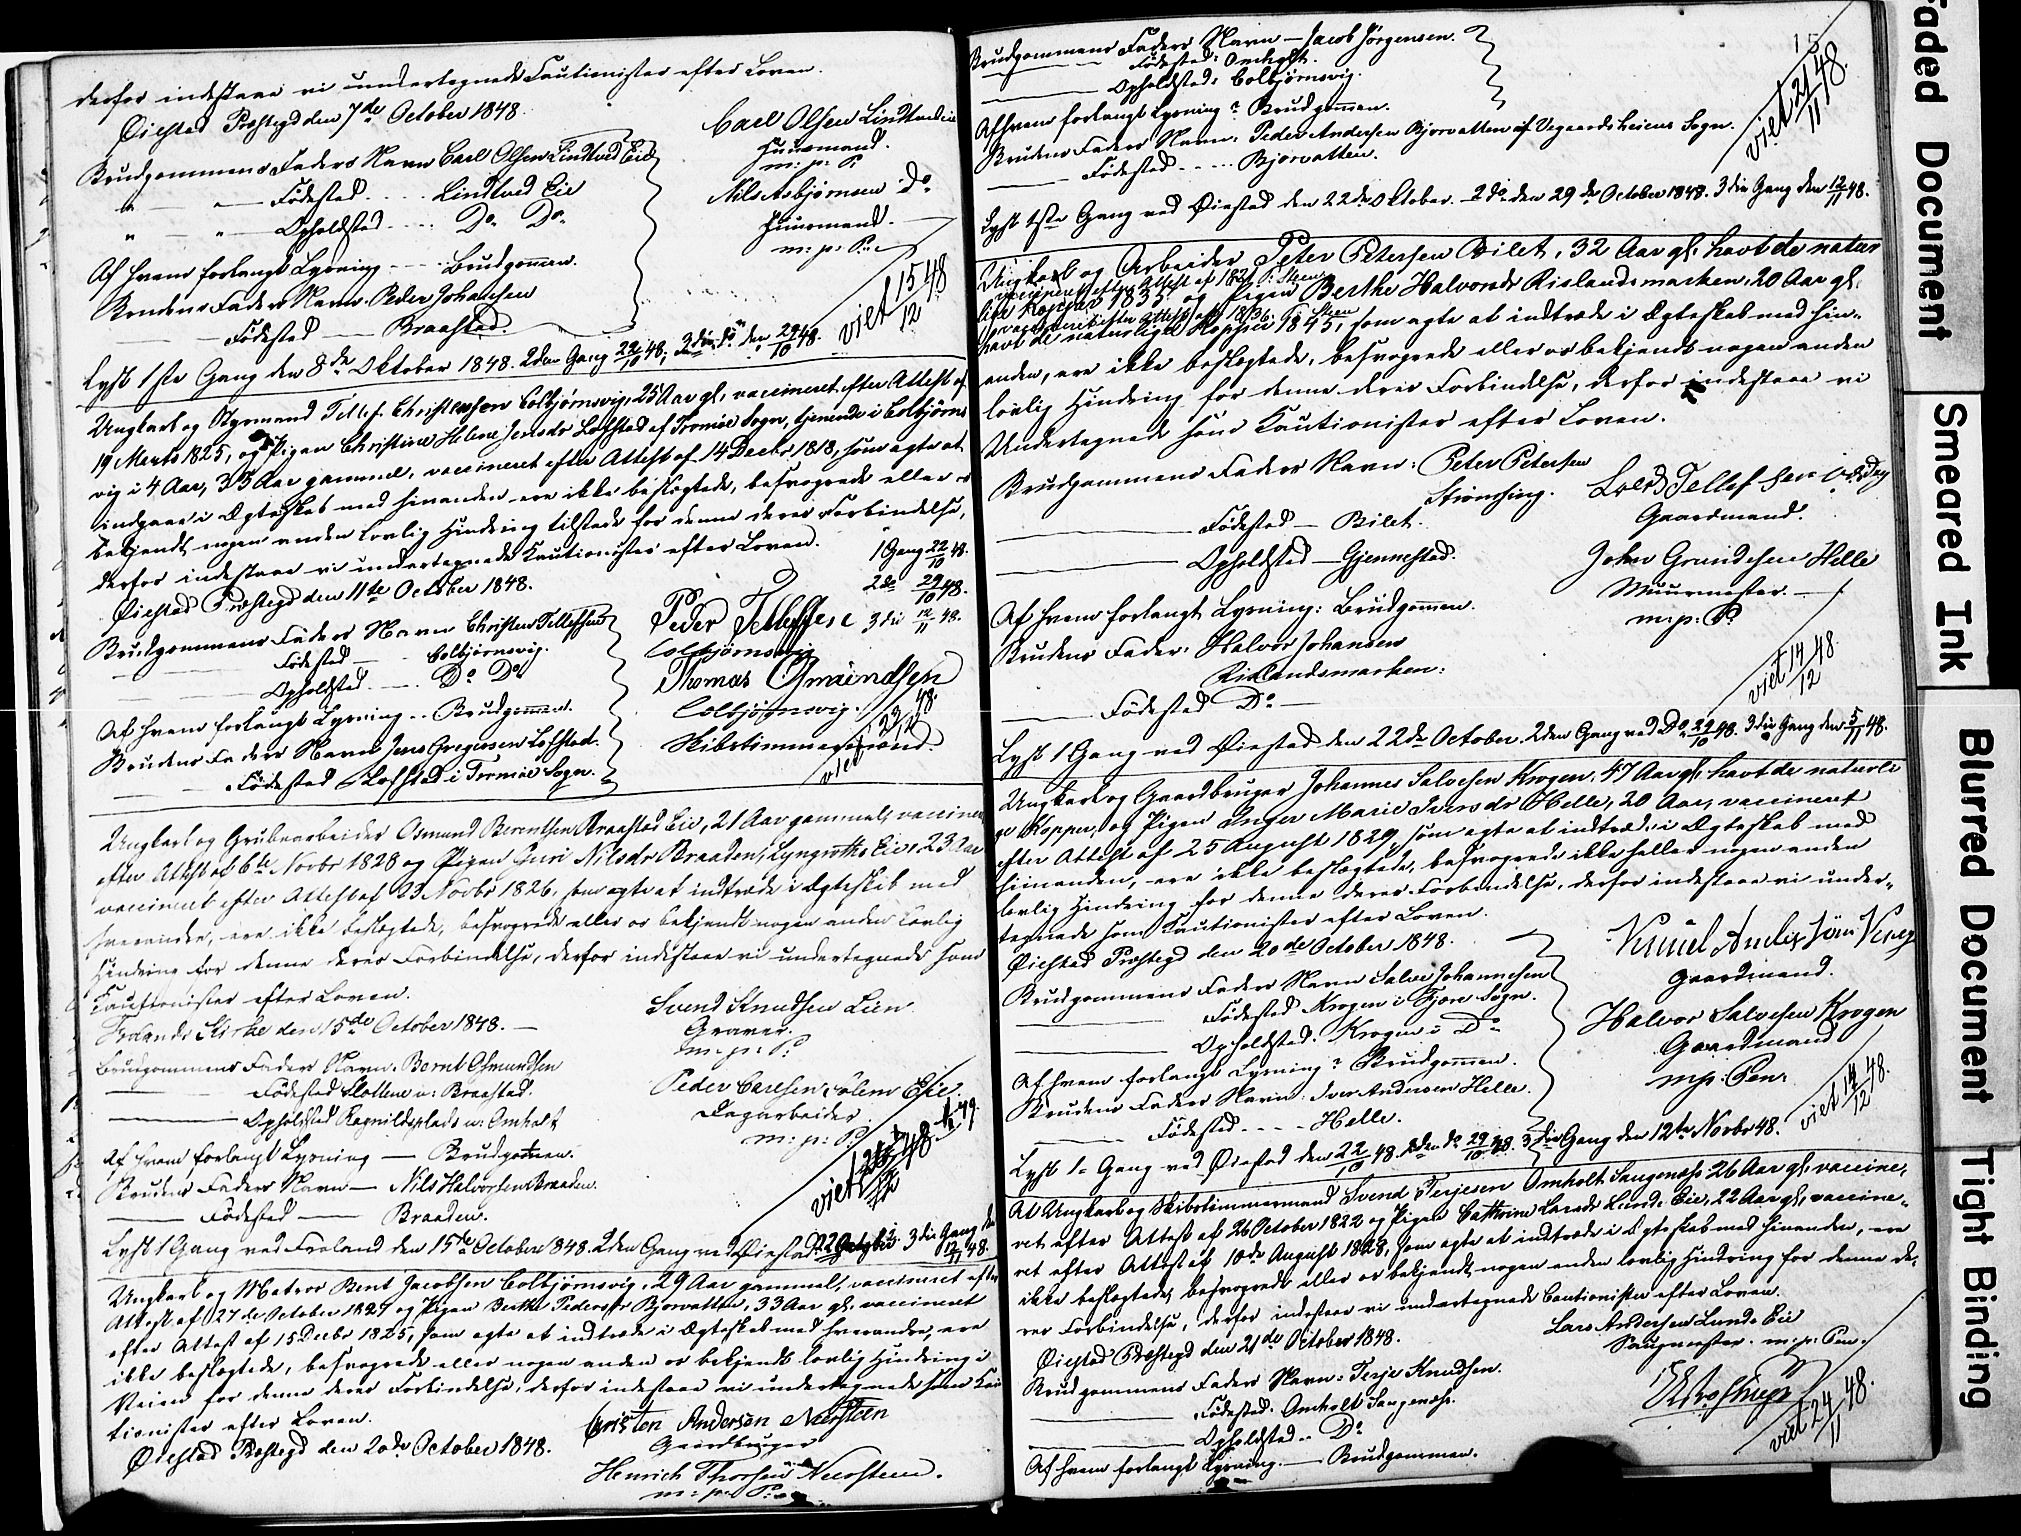 derfor indestaae vi undertegnede Cautionister efter Loven.
Øiestad Præstegd den 7de October 1848.
Carl Olsen Lindtvedeie
Huusmand.
m: p: P.
Brudgommens Faders Navn Carl Olsen Lindtved Eie
" — " — Fødested .... Lindtved Eie
Nils Asbjørnsen Do
" — " — Opholdsted .... Do Do
Huusmand.
m: p: P.
Af hvem forlangt Lysning .... Brudgommen.
Brudens Faders Navn. Peder Johansen
— Fødested — Braastad.
viet 15/12 48
Lyst 1ste Gang den 8de Oktober 1848. 2den Gang 22/10 48, 3die do den 29/10 48.
Ungkarl og Styrmand Tellef Christensen Colbjørnsvig, 25 Aar gl, vaccineret efter Attest af
19 Marts 1825, og Pigen Christine Helene Jensdr Lofstad af Tromøe Sogn, tjenende i Colbjørns
vig i 4 Aar, 33 Aar gammel, vaccineret efter Attest af 14 Decbr 1818, som agte at
indgaae i Ægteskab med hinanden ere ikke beslægtede, besvogrede eller os
bekjendt nogen anden lovlig Hindring tilstede for denne deres Forbindelse,
derfor indestaae vi undertegnede Cautionister efter Loven.
1 Gang 22/10 48.
Øiestad Præstegd den 11te October 1848.
2de 29/10 48.
Brudgommens Faders Navn Christen Tellefsen
Peder Telleffsen 3die 12/11 48.
Fødested — Colbjørnsvig.
Colbjørnsvig
Opholdsted .... Do Do
Thomas Gmundsen
Af hvem forlangt Lysning .. Brudgommen.
Colbjørnsvig.
Brudens Faders Navn Jens Gregersen Lofstad.
Skibstimmermand.
Fødested Lofstad i Tromøe Sogn.
viet 23/12 48.
Ungkarl og Grubearbeider Osmund Berentsen Braastad Eie, 21 Aar gammel, vaccineret
efter Attest af 6te Novbr 1828 og Pigen Guri Nilsdr Braaden, Lyngroths Eie, 23 Aar
vaccineret efter Attest af 23 Novbr 1826, som agte at indtræde i Ægteskab med
hverandre, ere ikke beslægtede, besvogrede eller os bekjendt nogen anden lovlig
Hindring for denne deres Forbindelse, derfor indestaae vi undertegnede som
Cautionister efter Loven.
Svend Knudsen Lien
Frolands Kirke den 15de October 1848. —
Graver.
m: p: P.
Brudgommens Faders Navn. Bernt Osmundsen
Fødested Slotten u: Braastad.
Peder Carlsen Solem Eie.
Opholdsted Ragnildsplads u: Omholt
Dagarbeider.
m: p: P.
Af hvem forlangt Lysning — Brudgommen.
Brudens Faders Navn — Nils Halvorsen Braaden.
— Fødested — Braaden.
Lyst 1 Gang ved Froland den 15de October 1848. 2den Gang ved Øiestad 22 October. 3die Gang den 12/11 48.
Ungkarl og Matros Bent Jacobsen Colbjørnsvig, 29 Aar gammel, vaccineret efter
Attest af 27de October 1827 og Pigen Berthe Pedersdr Bjorvatten, 33 Aar gl, vaccineret
efter Attest af 15 Decbr 1825, som agte at indtræde i Ægteskab med hverandre, ere
ikke beslægtede, besvogrede eller nogen anden os bekjendt lovlig Hindring i
Veien for denne deres Forbindelse, derfor indestaae vi undertegnede som Kau
tionister efter Loven.
Cristen Anderson Nersteen
Gaardbruger
Øiestad Præstegd den 20de October 1848.
Henrich Thorsen Neersteen.
m: p: P.
15
Brudgommens Faders Navn — Jacob Jørgensen.
Fødested: Omholt.
Opholdsted: Colbjørnsvig.
Af hvem forlangt Lysning? Brudgommen.
Brudens Faders Navn, Peder Andersen Bjorvatten af Vegaardsheiens Sogn.
Fødested .... Bjorvatten.
viet 21/11 48.
Lyst 1ste Gang ved Øiestad den 22de Oktober. 2do den 29de October 1848. 3die Gang den 12/11 48.
Ungkarl og Arbeider Peter Petersen Bilet, 32 Aar gl, havt de natur
lige Kopper 1835 og Pigen Berthe Halvorsdr Rislandsmarken, 20 Aar gl,
havt de naturlige Kopper 1845, som agte at indtræde i Ægteskab med hin-
anden, ere ikke beslægtede, besvogrede eller os bekjendt nogen anden
lovlig Hindring for denne deres Forbindelse, derfor indestaae vi
Undertegnede som Kautionister efter Loven.
Brudgommens Faders Navn: Peter Petersen
Strømsbing.
Gaardmand.
Fødested — Bilet.
Opholdsted — Gjennestad.
John Grundesen Helle
Muurmester. —
m: p: P.
Af hvem forlangt Lysning: Brudgommen.
Brudens Fader. Halvor Johansen
Rislandsmarken.
Fødested Do —
viet 14/12 48.
Lyst 1 Gang ved Øiestad den 22de October. 2den Gang ved Do 29/10 48. 3die Gang den 5/11 48.
Ungkarl og Gaardbruger Johannes Salvesen Krogen, 47 Aar gl, havt de naturli
ge Kopper, og Pigen Inger Marie Iversdr Helle, 20 Aar, vaccineret
efter Attest af 25 August 1829, som agte at indtræde i Ægteskab med
hinanden, ere ikke beslægtede, besvogrede ikke heller nogen anden
lovlig Hindring for denne deres Forbindelse, derfor indestaae vi under-
tegnede som Kautionister efter Loven.
Øiestad Præstegd den 20de October 1848.
Gaardmand.
Brudgommens Faders Navn Salve Johannesen
Fødested Krogen i Fjære Sogn.
Halvor Salvesen Krogen
Opholdsted. Krogen i Do
Gaardmand
mp: Pen:
Af hvem forlangt Lysning? Brudgommen.
Brudens Faders Navn: Iver Andersen Helle.
Fødested .... Helle.
viet 14/12 48.
Lyst 1. Gang ved Øiestad den 22/10 48. 2den do 29/10 48. 3die Gang den 12te Novbr 48.
At Ungkarl og Skibstimmermand Svend Terjesen Omholt Langenæs 26 Aar gl, vaccine-
ret efter Attest af 26 October 1822 og Pigen Cathrine Larsdr Lunde Eie, 22 Aar gl, vaccine-
ret efter Attest af 10de August 1828, som agte at indtræde i Ægteskab med hinanden, ere
ikke beslægtede, besvogrede eller os bekjendt nogen anden lovlig Hindring for denne de-
res Forbindelse, derfor indestaae vi undertegnede Cautionister efter Loven.
Øiestad Præstegd den 21de October 1848.
Lars Andersen Lunde Eie
Saugmester. m: p: Pen.
Brudgommens Faders Navn: Terje Knudsen.
Fødested: Omholt Langenæs.
Opholdsted .. Do
Af hvem forlangt Lysning. — Brudgommen.
viet 24/11 48.
Faded Document
Smeared Ink
Blurred Document
Tight Binding